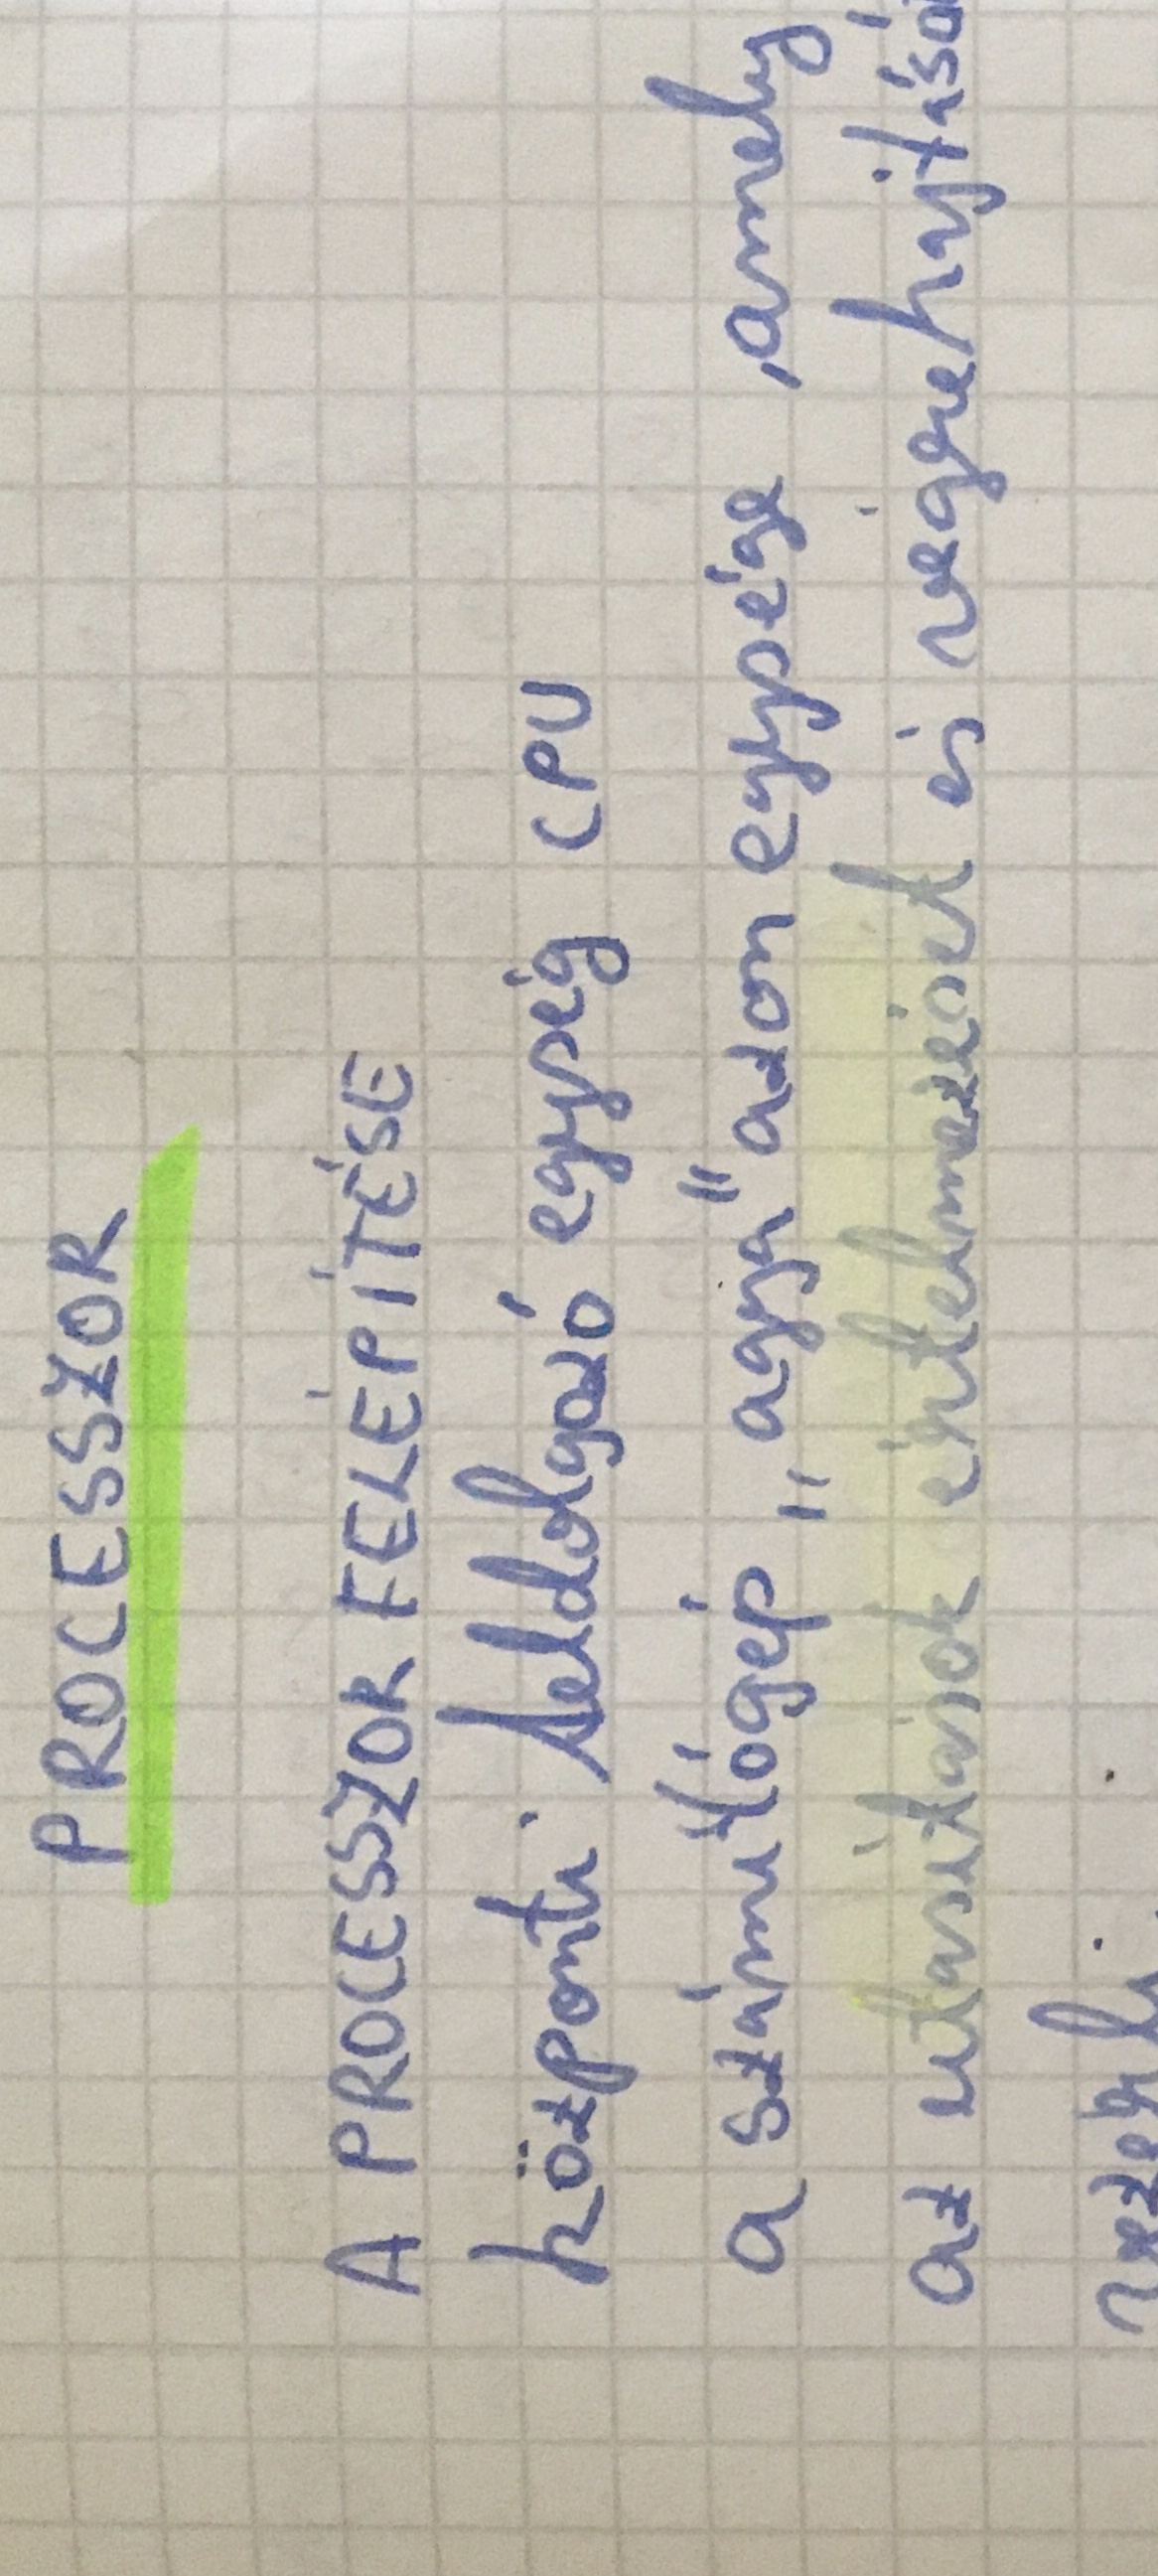 PROCESSZOR
A PROCESSZOR FELÉPÍTÉSE
központi feldolgozó egység CPU
a számítógép „ agya" azon egysége, amely
az utasítások értelmezését és végrehajtásá
vezérli.